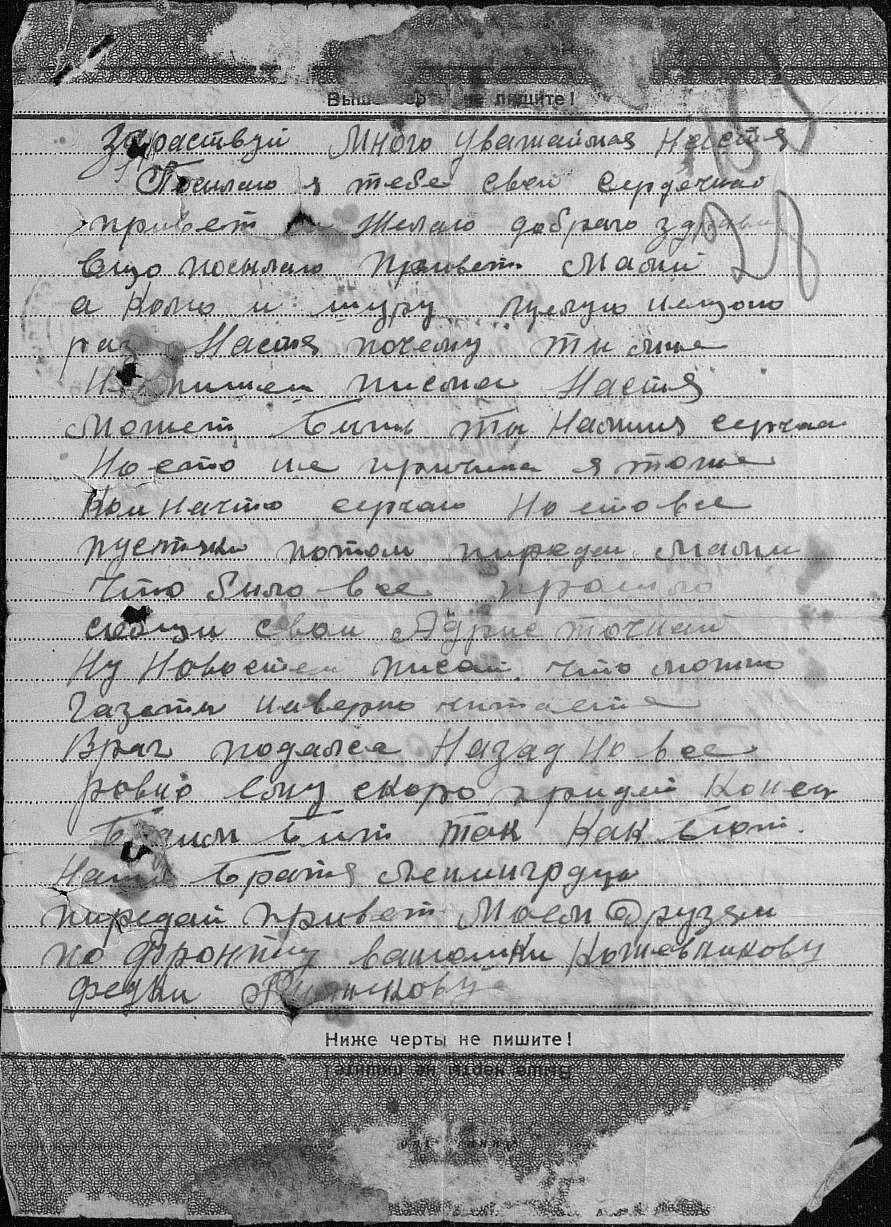 Выше черты не пишите!
Здраствуй Много уважаймая Настя
Посылаю я тебе свой сердечной
привет и Желаю доброго здравия
Ещо посылаю привет Мамы
а Колю и шуру целую несщото
раз Настя почему ты мне
Не пишеш писма Настя
Может быть ты На меня серчаеш
Но ето не причина я тоже
кой Начто серчаю Но ето все
пустяки потом передай Мамы
Что было все прошло
свой Адрис точнай
Ну Новостей писат что можно
газеты наверно читаете
Враг подался Назад Но все
ровно ему скоро придет конец
Будим бит так как бют
Наши братя Ленинградцы
передай привет Моем Друзям
по фронту Кожевникову
феди
Ниже черты не пишите!
Выше черты не пишите!